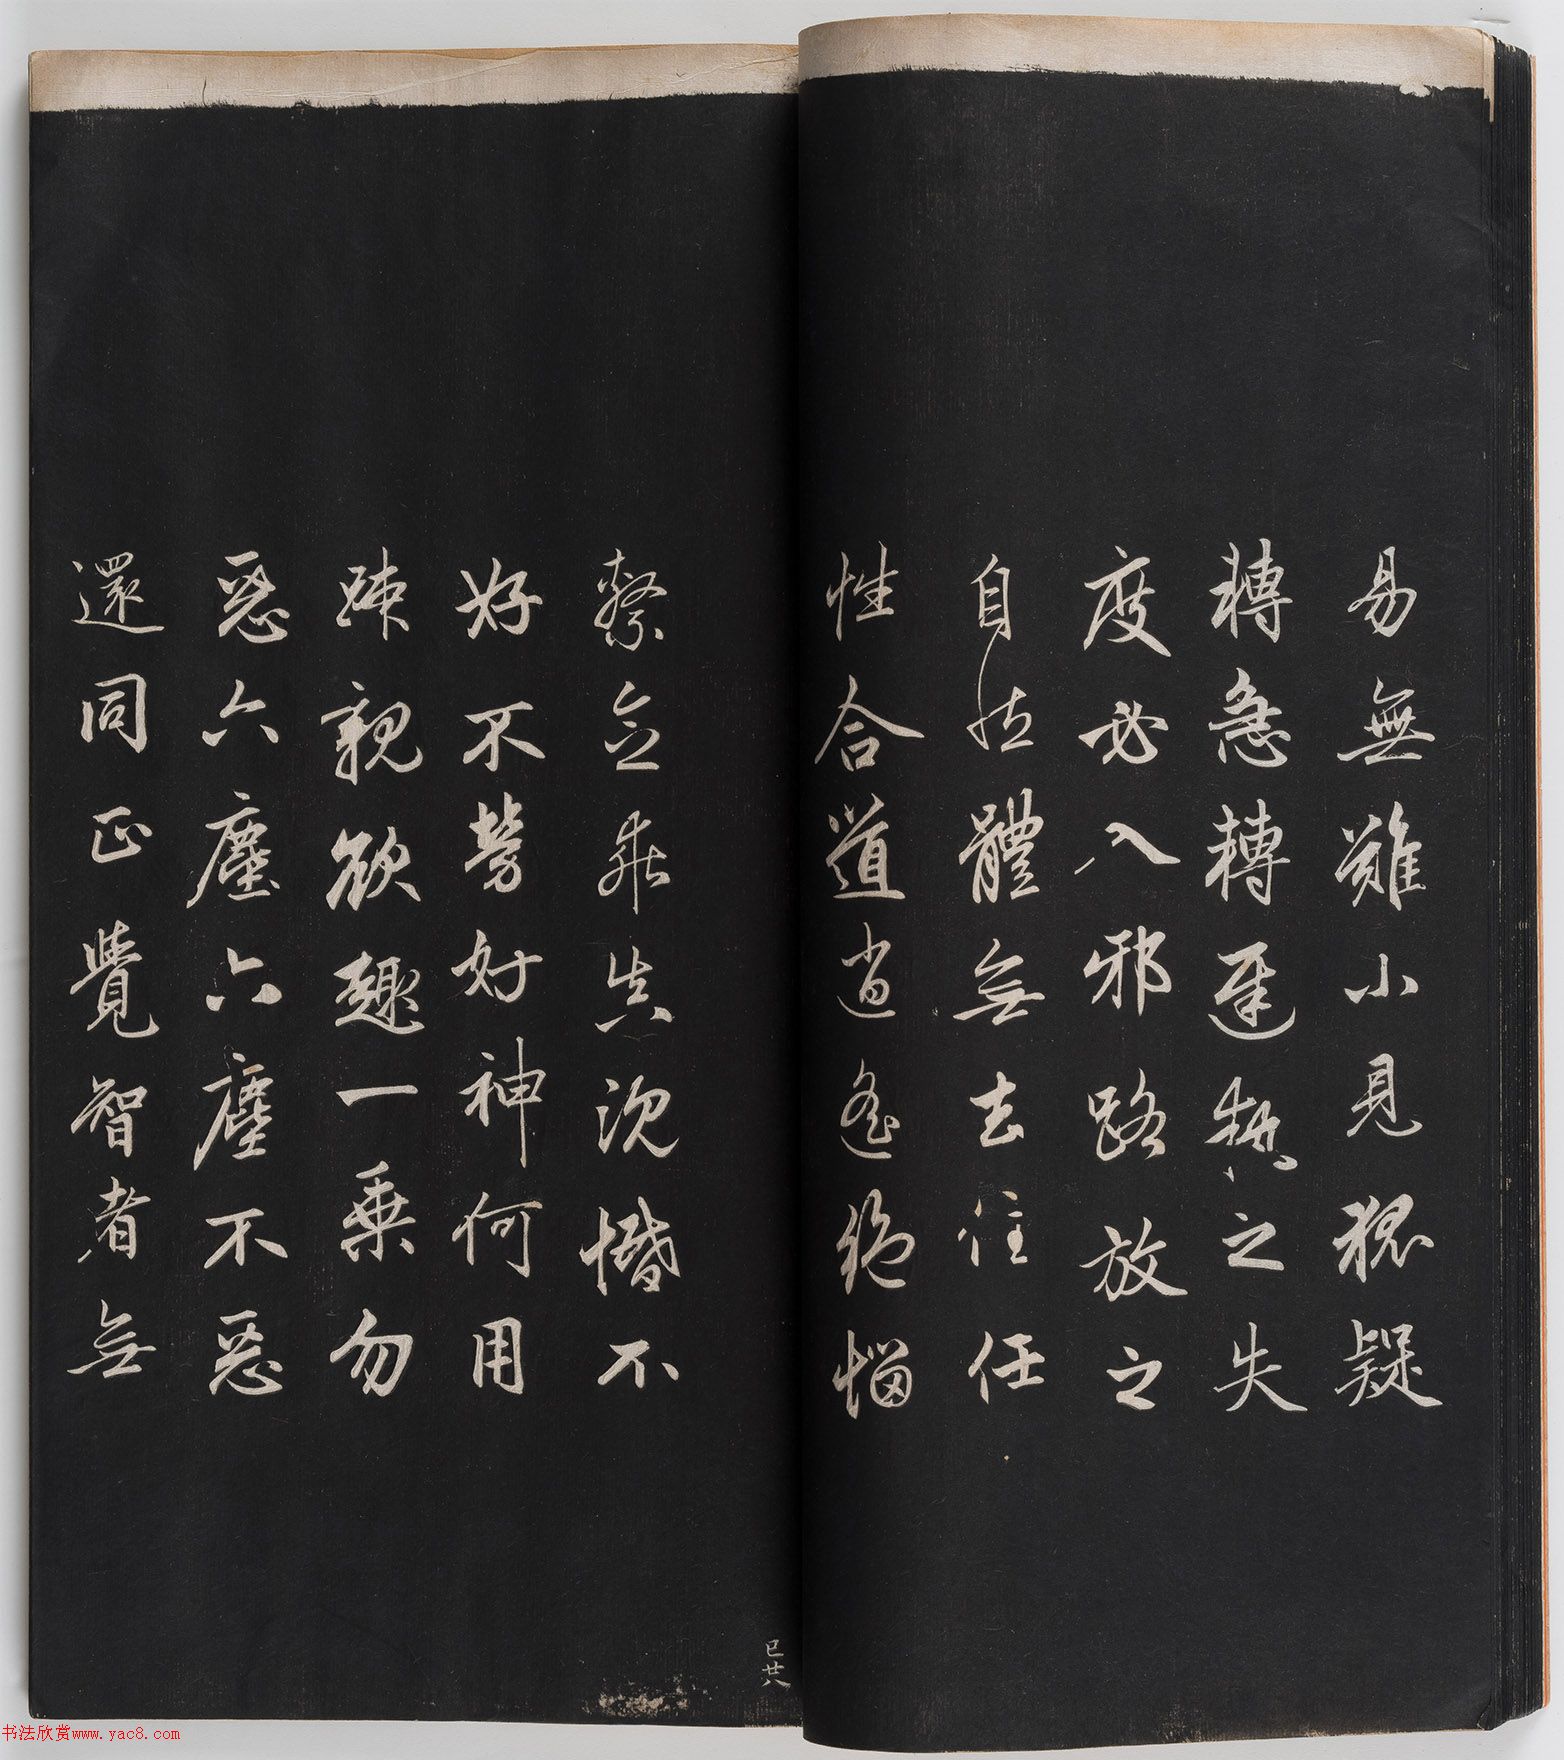 易無難小見狐疑
轉急轉遲執之失
度必入邪路放之
自然體無去住任
性合道逍遙絕惱
繫念乖真沉惛不
好不勞好神何用
疎親欲趣一乘勿
惡六塵六塵不惡
還同正覺智者無
巳廿八
书法欣赏www.yac8.com